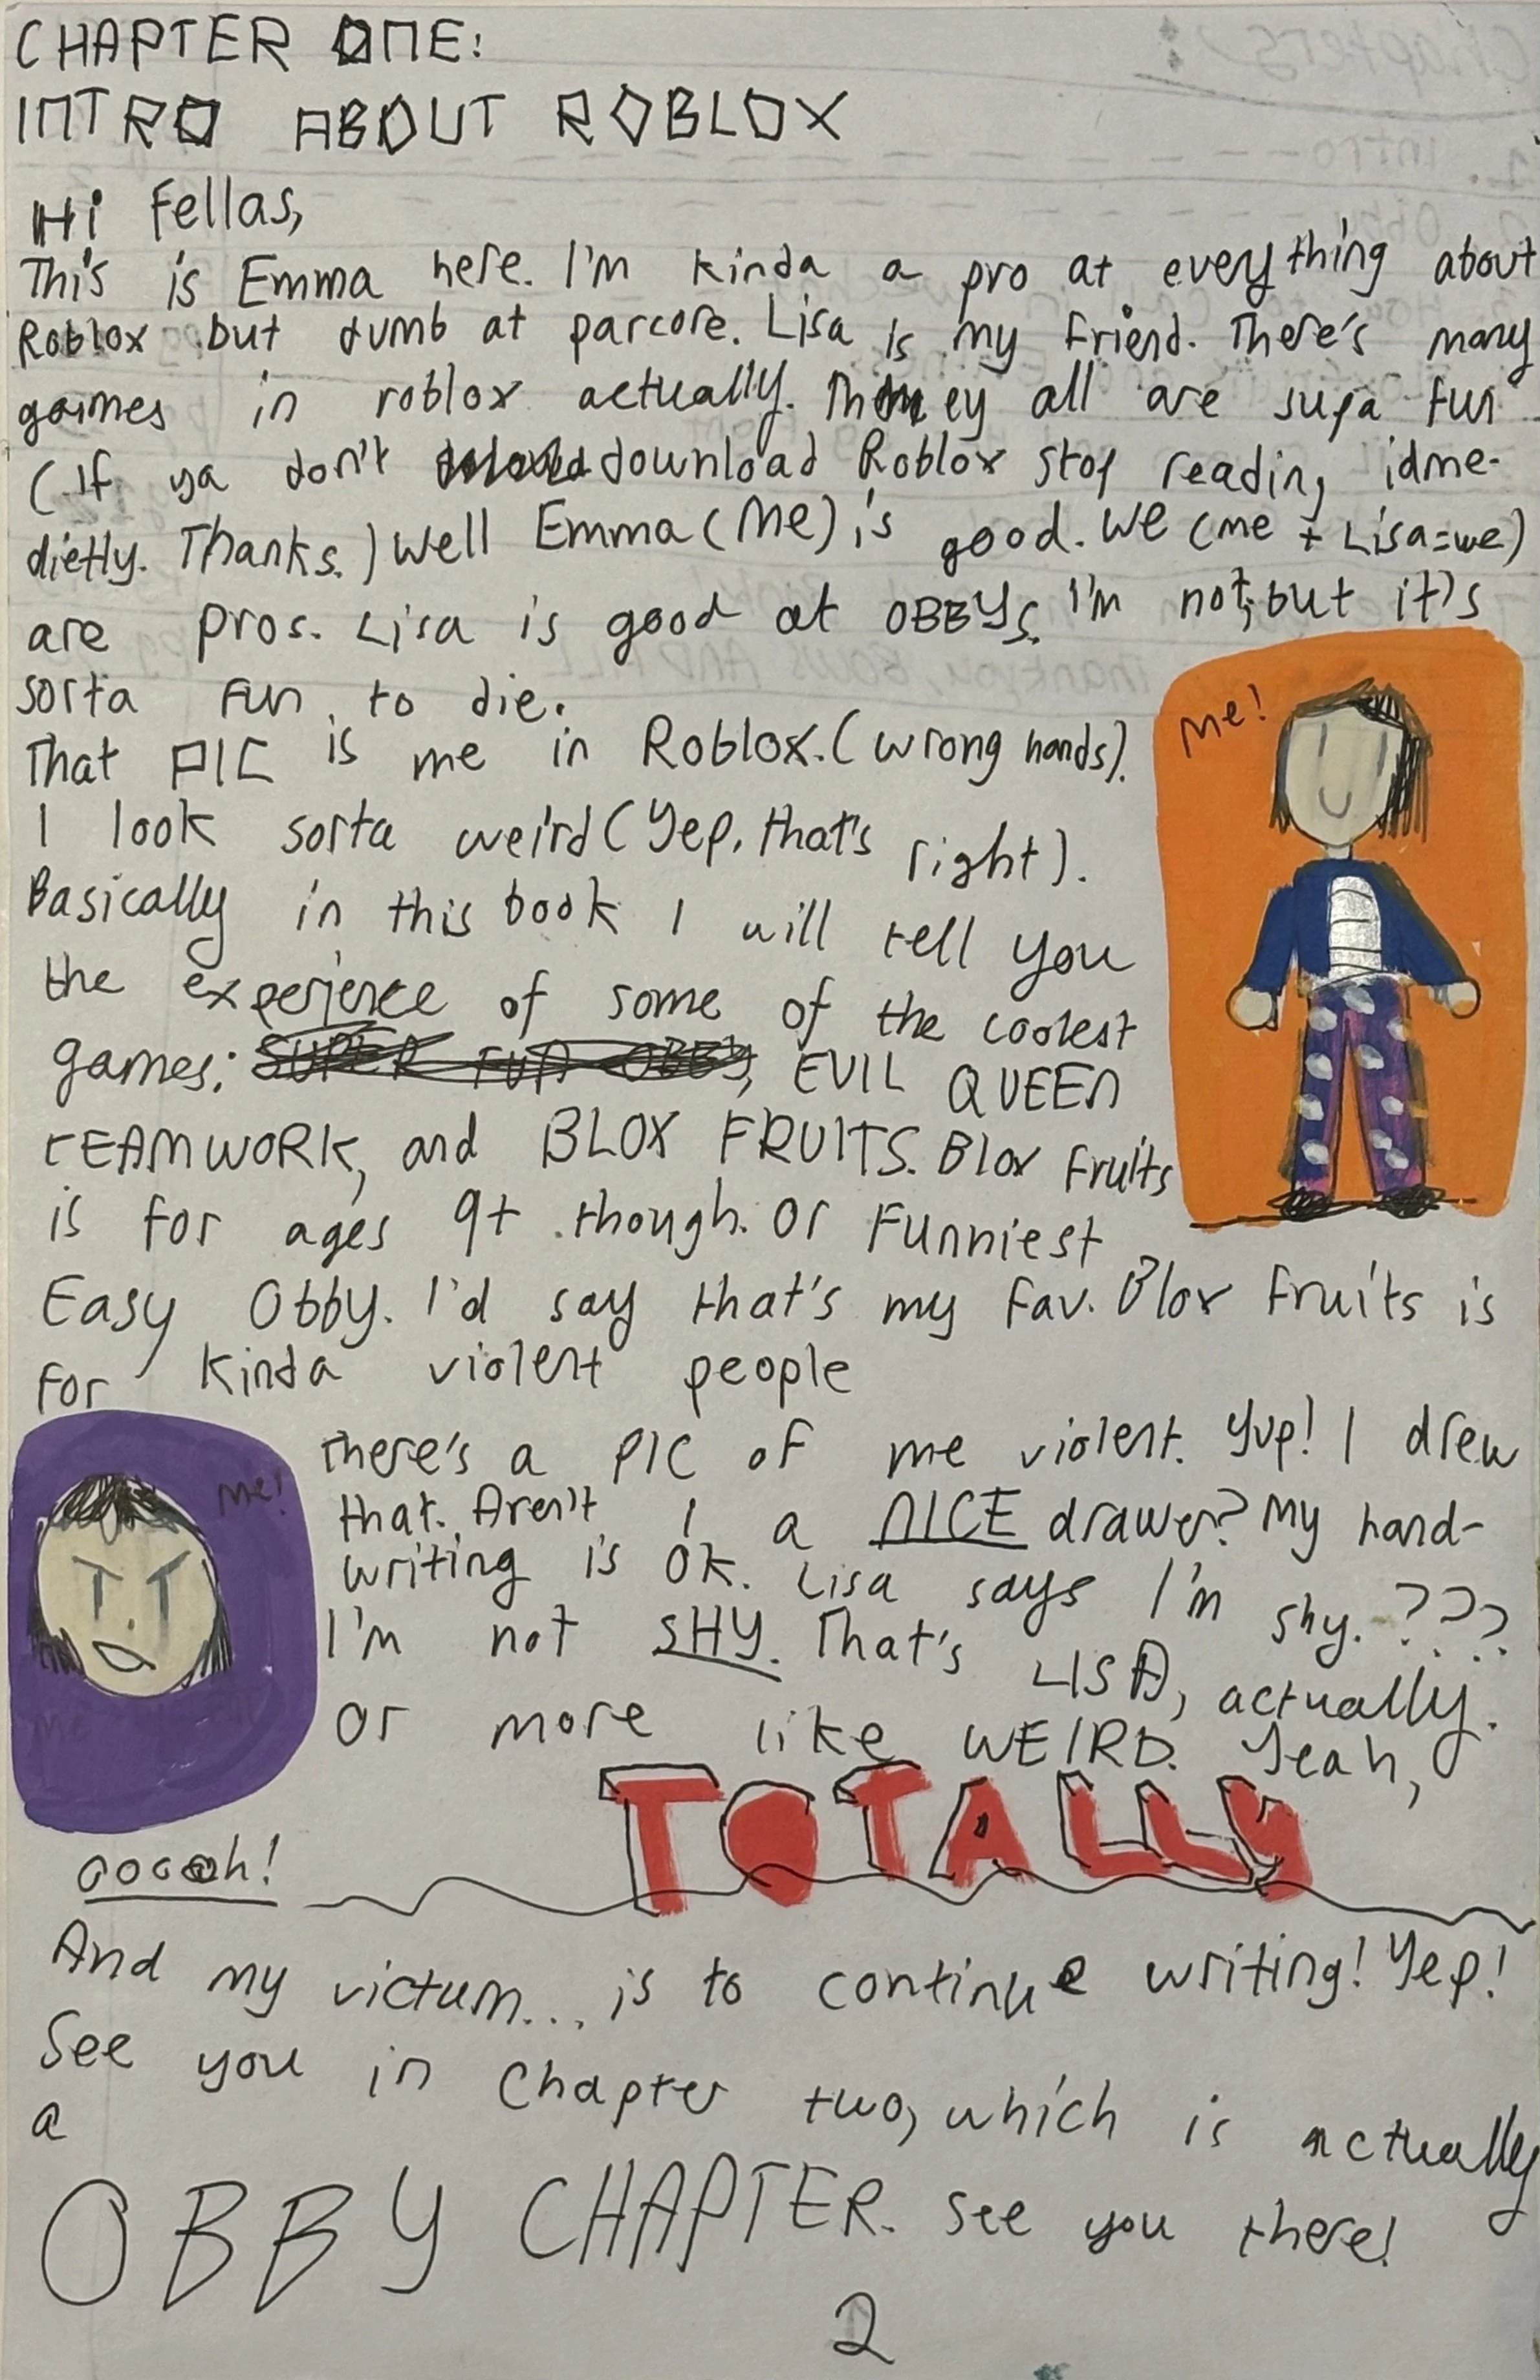 CHAPTER ONE:
INTRO ABOUT ROBLOX
Hi Fellas,
This is Emma here. I'm kinda a pro at everything about
Roblox but dumb at parcore. Lisa is my friend. There's many
gaimes in roblox actually. They all are supa fun
(If ya don't download Roblox stop reading idme-
dietly. Thanks.) Well Emma (Me) is good. We (me + Lisa=we)
are pros. Lisa is good at OBBYS. I'm not, but it's
sorta fun to die.
That PIC is me in Roblox. (wrong hands).
I look sorta weird (Yep, that's right).
Basically in this book I will tell you
the experience of some of the coolest
games: SUPER FUN OBBY, EVIL QUEEN
TEAMWORK, and BLOX FRUITS. Blox Fruits
is for ages 9+ though. Or Funniest
Easy Obby. I'd say that's my fav. Blox Fruits is
for kinda violent people
me!
There's a PIC of me violent. Yup! I drew
that. Aren't I a NICE drawer? My hand-
writing is OK. Lisa says I'm shy. ???
I'm not SHY. That's LISA, actually.
Or more like WEIRD. Yeah,
me!
TOTALLY
ooooh!
And my victum... is to continue writing! Yep!
See you in Chapter two, which is actually
a
OBBY CHAPTER. See you there!
2